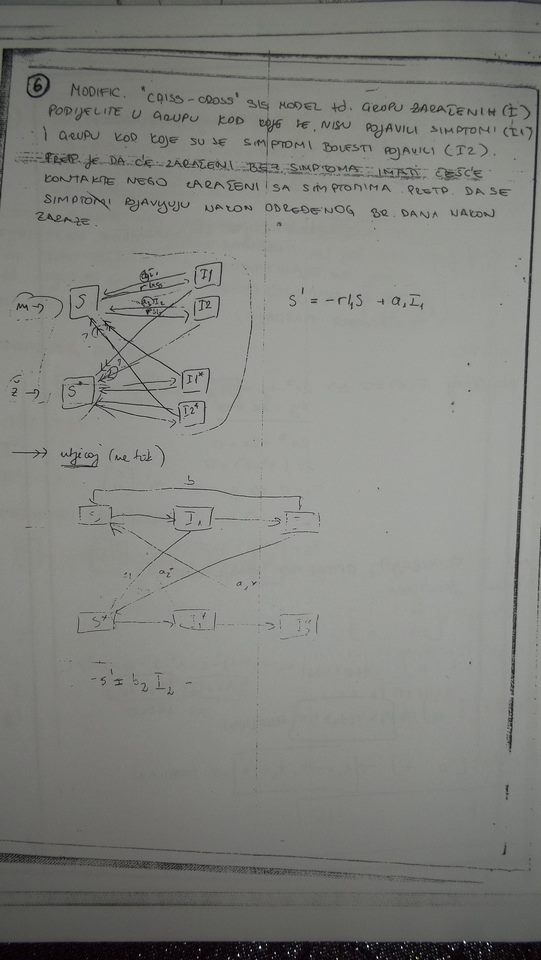 6 MODIFIC. "CRISS-CROSS" SIS MODEL td. GRUPU ZARAŽENIH (I)
PODIJELITE U GRUPU KOD KOJE SE NISU POJAVILI SIMPTOMI (I1)
I GRUPU KOD KOJE SU SE SIMPTOMI BOLESTI POJAVILI (I2).
PRETP. JE DA ĆE ZARAŽENI BEZ SIMPTOMA IMATI ČEŠĆE
KONTAKTE NEGO ZARAŽENI SA SIMPTOMIMA. PRETP. DA SE
SIMPTOMI POJAVLJUJU NAKON ODREĐENOG BR. DANA NAKON
ZARAZE.
I1
m → S
I2
S' = -rI₁S + a₁I₁
ž → S*
I1*
I2*
→ utjecaj (ne tok)
b
I₁
a₂* a₁*
S* I₁*
-S' = b₂ I₂ -